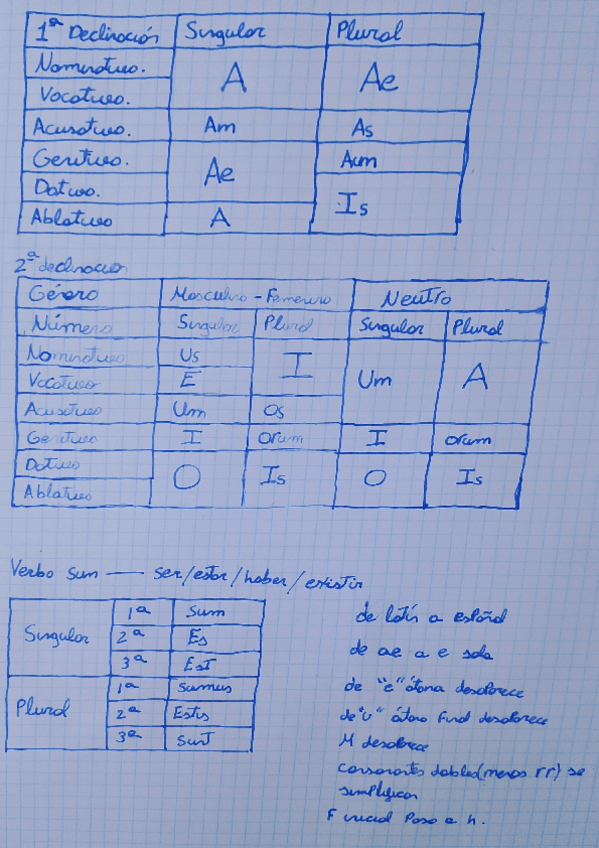 1ª Declinación Singular Plural
Nominativo. A Ae
Vocativo.
Acusativo. Am As
Genitivo. Ae Aum
Dativo. Is
Ablativo A
2ª declinacion
Género Masculino - Femenino Neutro
Número Singular Plural Singular Plural
Nominativo Us I Um A
Vocativo E
Acusativo Um Os
Genitivo I orum I orum
Dativo O Is O Is
Ablativo
Verbo sum — ser/estar/haber/existir
Singular 1ª Sum
2ª Es
3ª Est
Plural 1ª Sumus
2ª Estis
3ª Sunt
de latín a español
de ae a e sola
de "e" átona desaparece
de "u" átona final desaparece
M desaparece
consonantes dobles (menos rr) se
simplifican
F inicial Pasa a h.